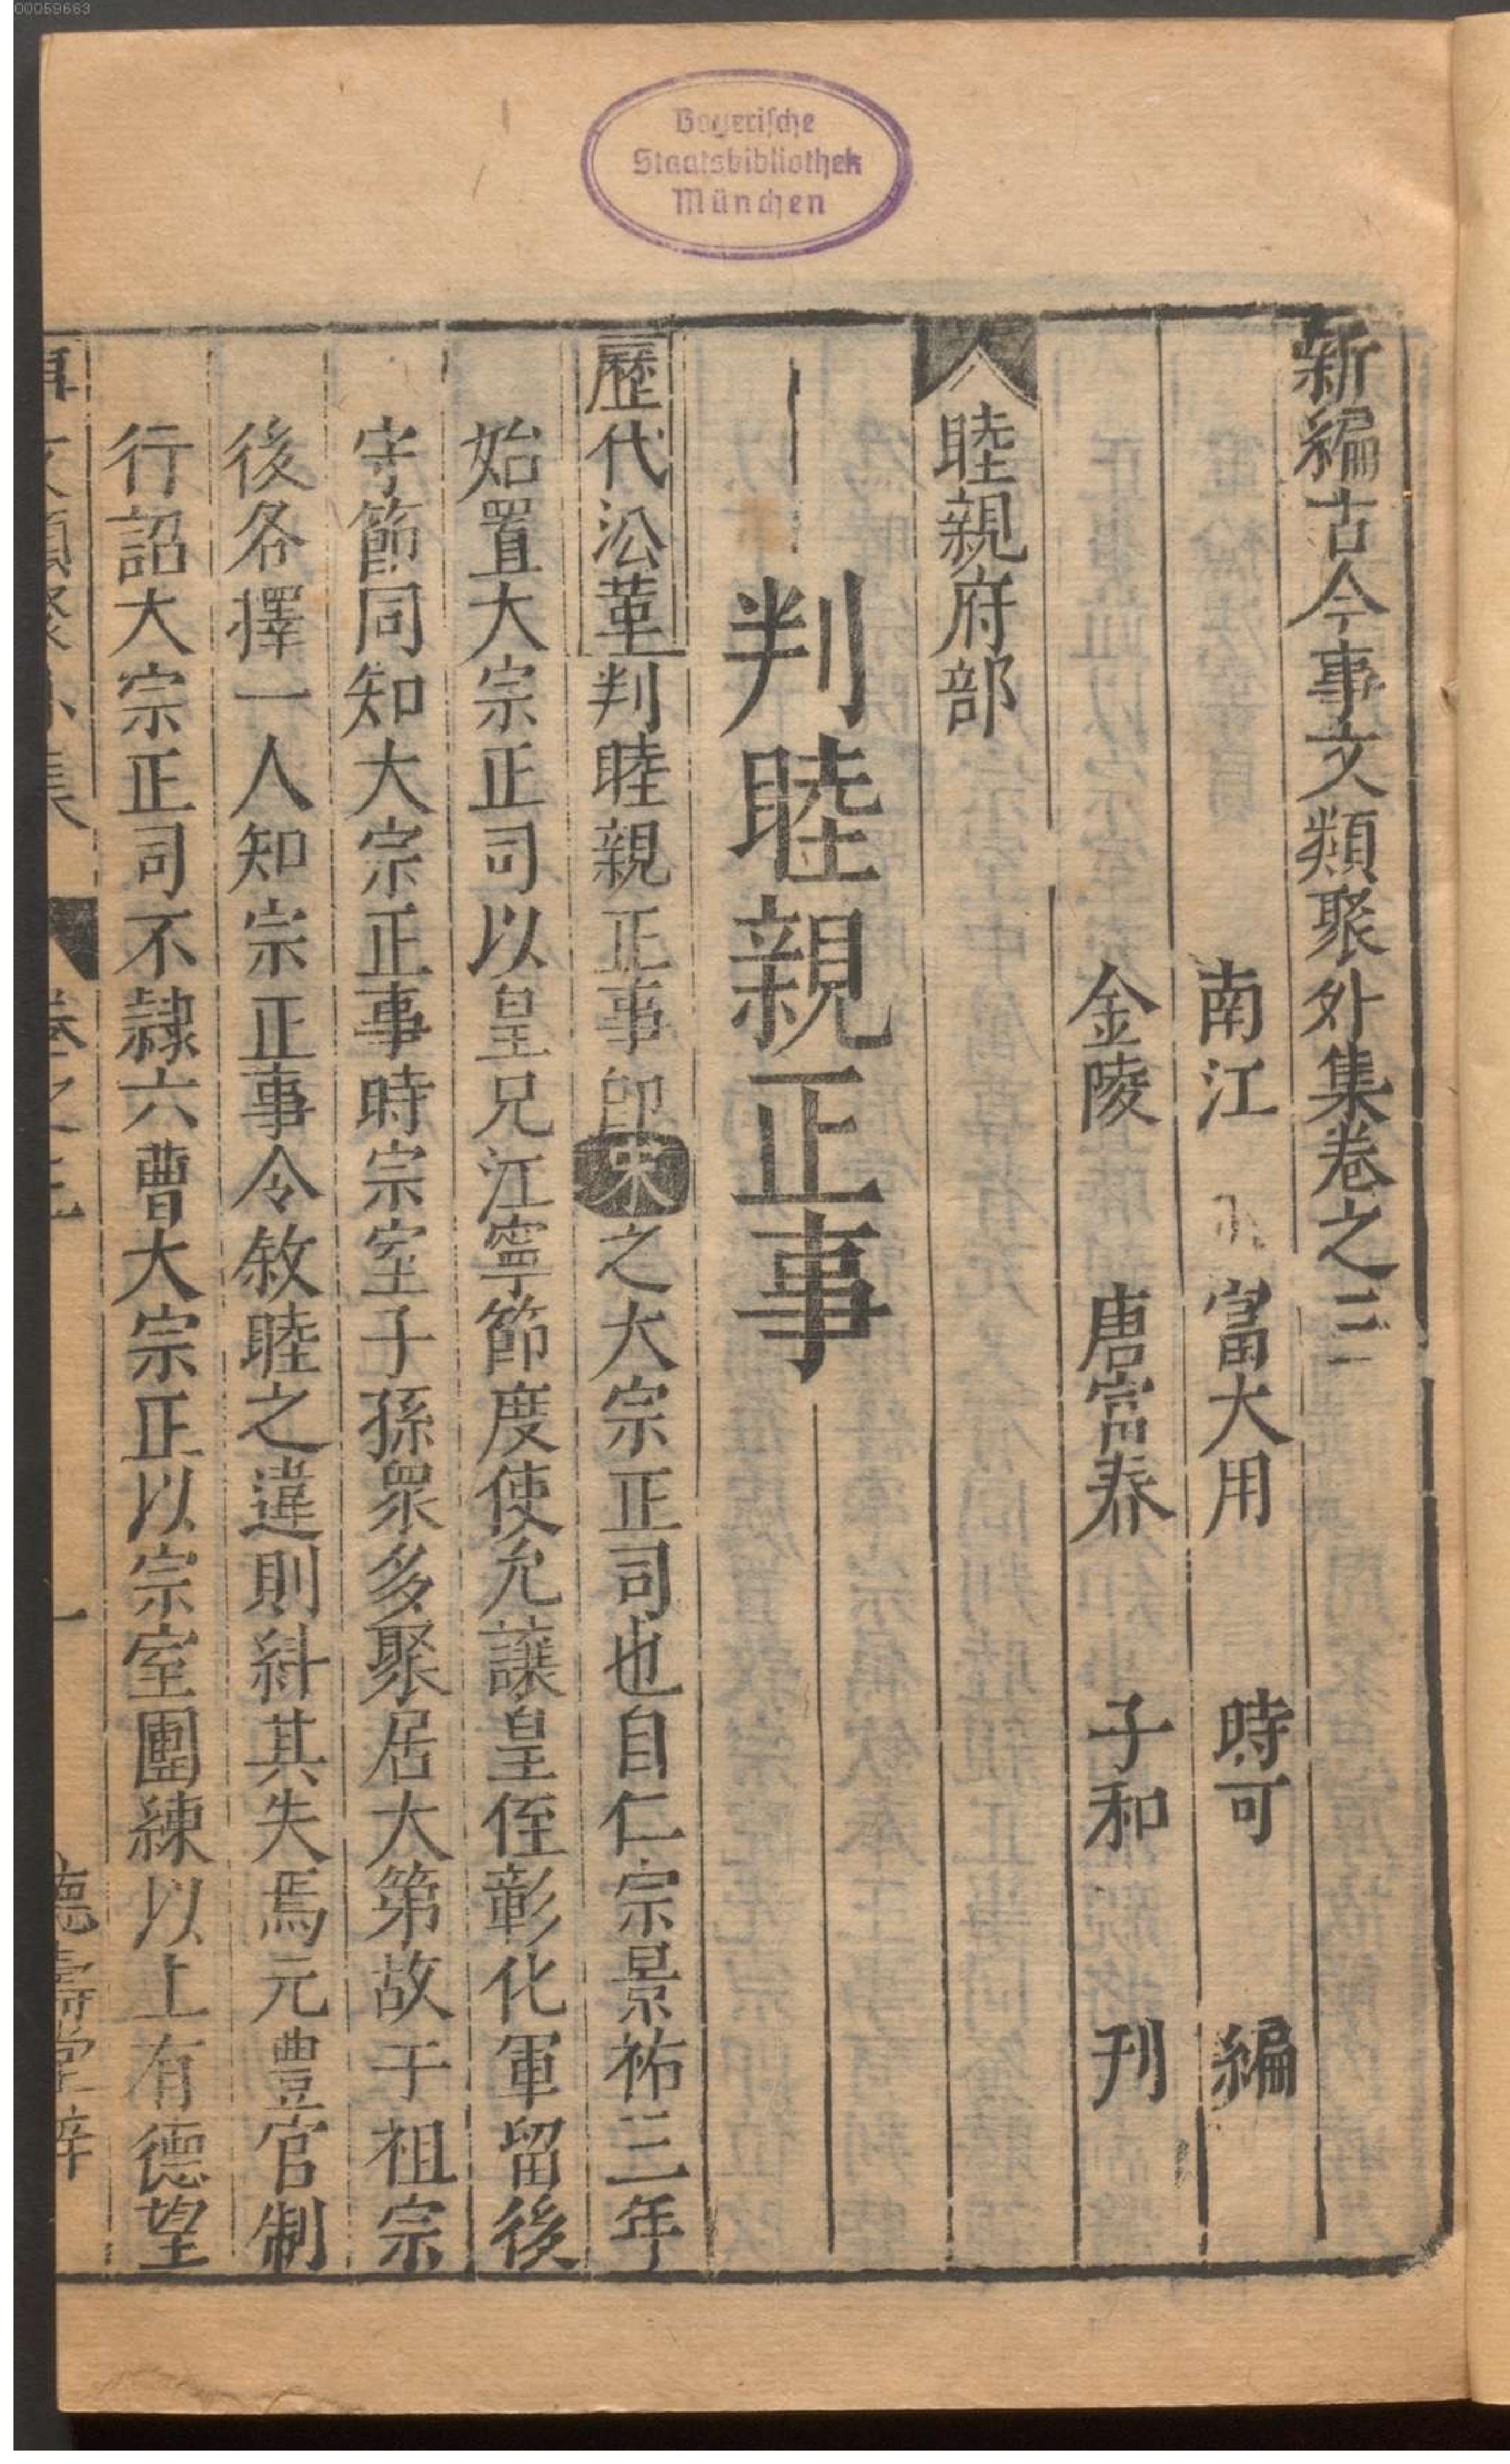 00059663
Bayerische
Staatsbibliothek
München
新編古今事文類聚外集卷之三
南江 富大用 時可 編
金陵 唐富春 子和 刊
睦親府部
判睦親正事
歷代沿革判睦親正事即宋之大宗正司也自仁宗景祐三年
始置大宗正司以皇兄江寧節度使允讓皇侄彰化軍留後
守節同知大宗正事時宗室子孫衆多聚居大第故于祖宗
後各擇一人知宗正事令敘睦之違則糾其失焉元豊官制
行詔大宗正司不隷六曹大宗正以宗室團練以上有德望
事文類聚外集 卷之三 一 德壽堂梓